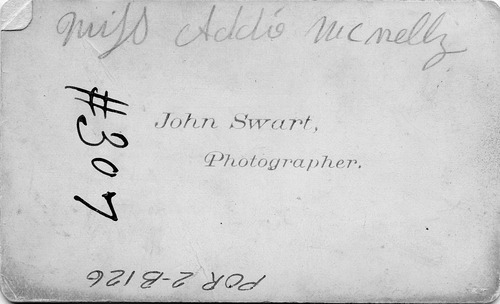 Miss Addie McNelly
#307
John Swart,
Photographer.
POR 2-B126